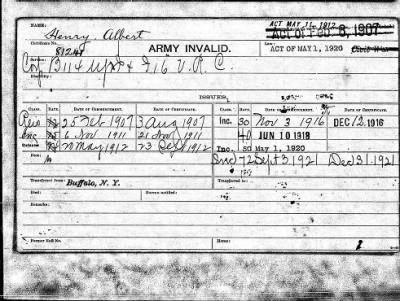 NAME:
Henry, Albert
ACT MAY 11, 1912
ACT OF FEB. 6, 1907
Certificate No.
81241
ARMY INVALID.
Law:
ACT OF MAY 1, 1920
Civil War
Service:
Co. B 114
& I 16 V. R. C.
Disability:
ISSUES.
CLASS. RATE. DATE OF COMMENCEMENT. DATE OF CERTIFICATE. CLASS. RATE. DATE OF COMMENCEMENT. DATE OF CERTIFICATE.
12 25 Feb 1907 3 Aug 1907 Inc. 30 Nov 3 1916 DEC 12. 1916
Inc 15 6 Nov 1911 21 Nov 1911 40 JUN 10 1918
May 1912 23 1912 Inc. 50 May 1, 1920
72 Sept 3 1921 Dec 31, 1921
Transferred from
Buffalo, N. Y.
Transferred to
Remarks:
Former Roll No.
Home:
1